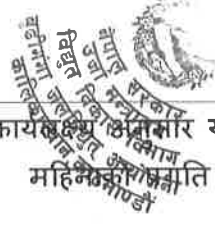 नेपाल सरकार
उर्जा मन्त्रालय
विद्युत विकास विभाग
बुढीगंगा जलविद्युत आयोजना
काठमाण्डौं
कार्यलक्ष्य अनुसार
महिनाको प्रगति